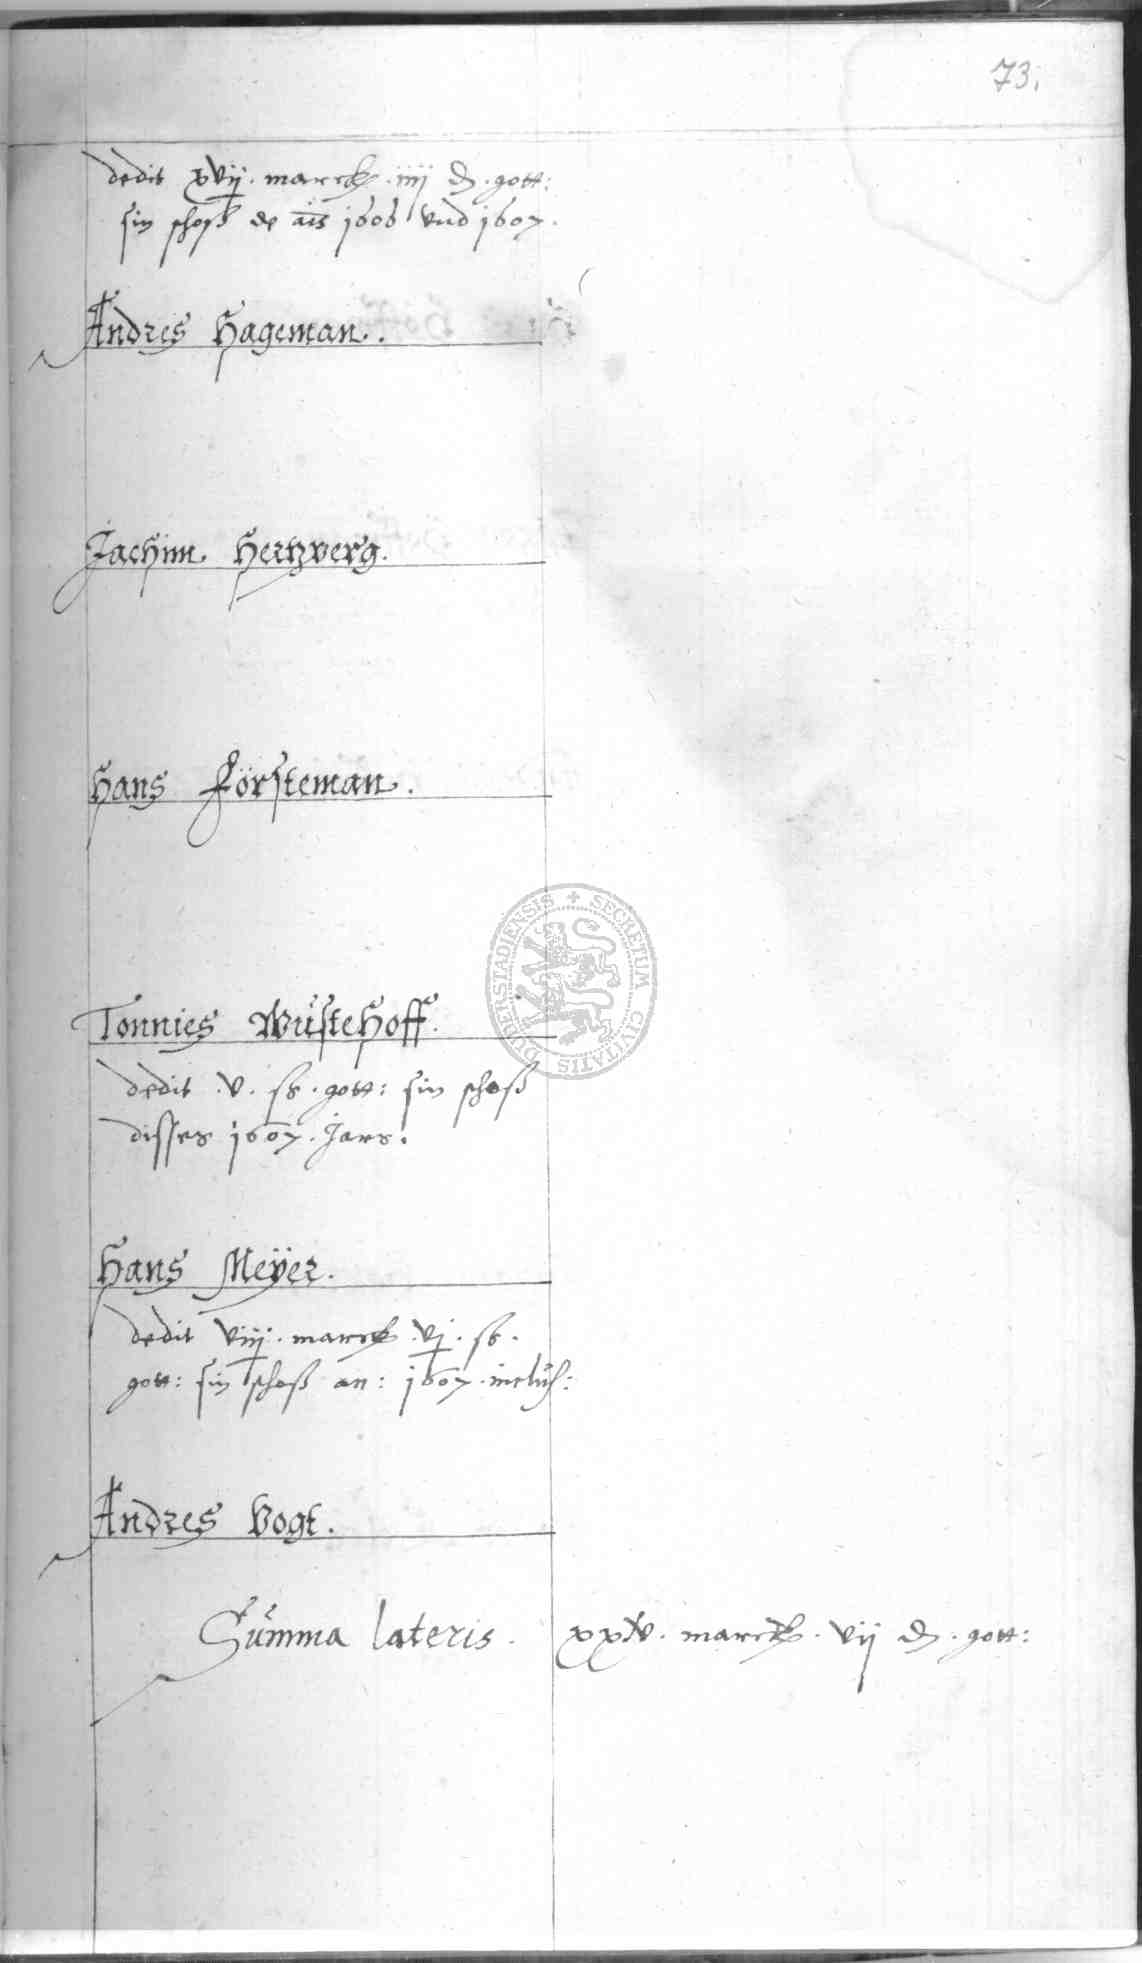 73.
dedit xvij. marck. iiij ₰. gott:
sin schoß de añis 1606 vnd 1607.
Andres Hageman.
Jachim Hertzberg.
Hans Försteman.
Tonnies Wüstehoff.
dedit .v. ß. gott: sin schoß
disses 1607. Jars.
Hans Meÿer.
dedit viij. marck vj. ß.
gott: sin schoß an: 1607. inclus:
Andres Vogt.
Summa lateris. xxv. marck. vij ₰. gott:
SECRETUM CIVITATIS DUDERSTADIENSIS